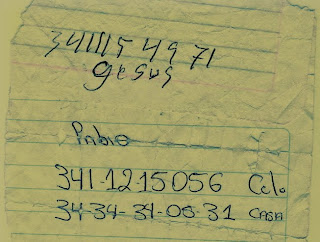 341 115 49 71
gesus
Pablo
341-12-15056 Celo
34-34-31-08-31 CASA